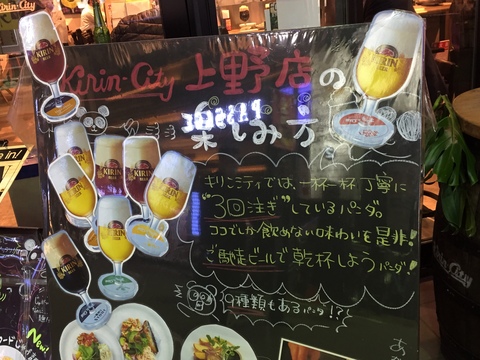 Kirin-City
Kirin-City 上野店の
楽しみ方
キリンシティでは、一杯一杯 丁寧に
"3回注ぎ"しているパンダ。
ココでしか飲めない味わいを是非!
ご馳走ビールで乾杯しようパンダ!
9種類もあるパンダ!?
KIRIN
KIRIN
KIRIN
KIRIN
KIRIN
New!
あ